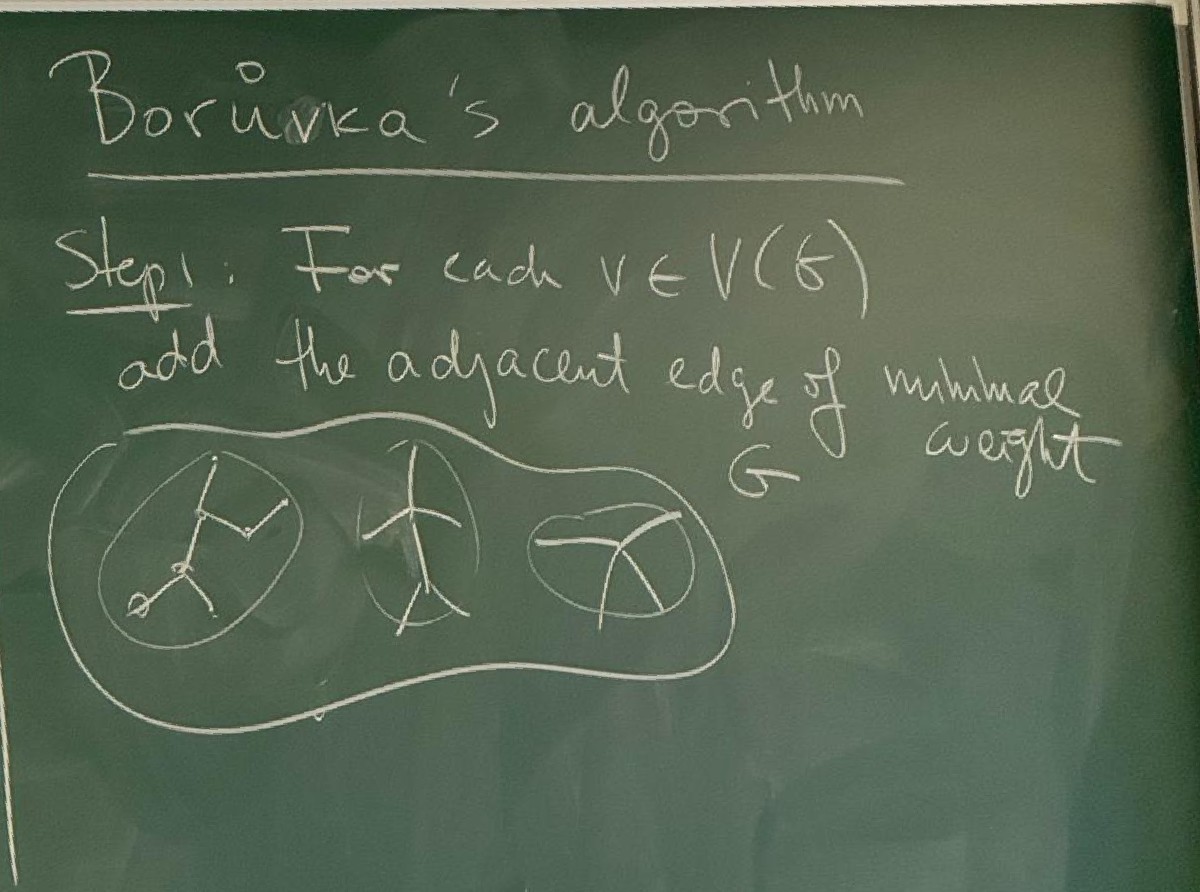 Borůvka's algorithm
Step1: For each v ∈ V(G)
add the adjacent edge of minimal
weight
G